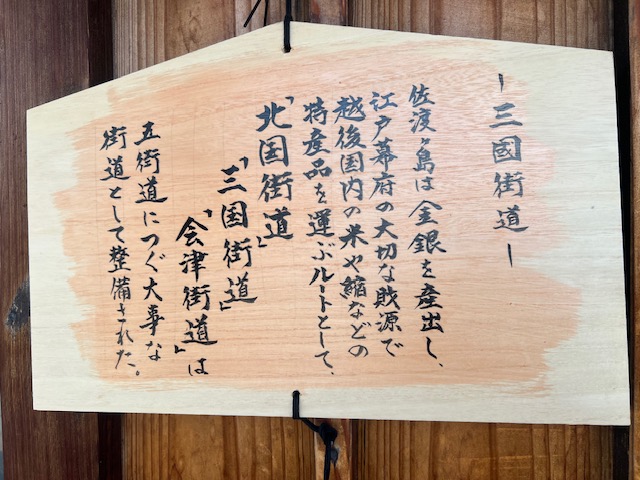 ー三國街道ー
佐渡ヶ島は金銀を産出し、
江戸幕府の大切な財源で
越後国内の米や縮などの
特産品を運ぶルートとして、
「北国街道」
「三国街道」
「会津街道」は
五街道につぐ大事な
街道として整備された。